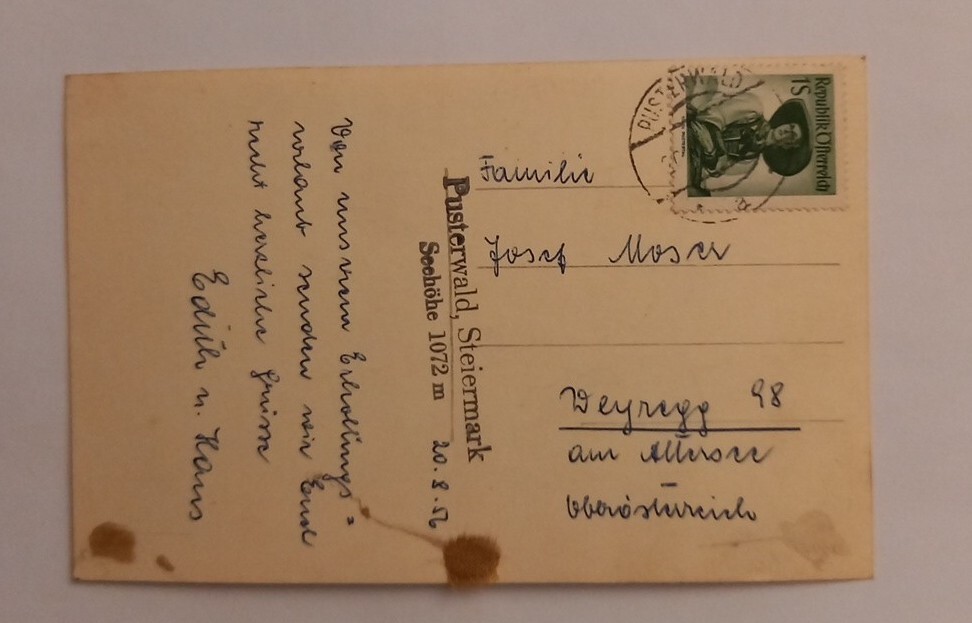 Von unserem Erhollings=
urlaub senden wir Euch
recht herzliche Grüsse
Edith u. Hans
20.8.56
Pusterwald, Steiermark
Seehöhe 1072 m
Republik Österreich
1S
PUSTERWALD
Familie
Josef Moser
Weyregg 98
am Attersee
Oberösterreich